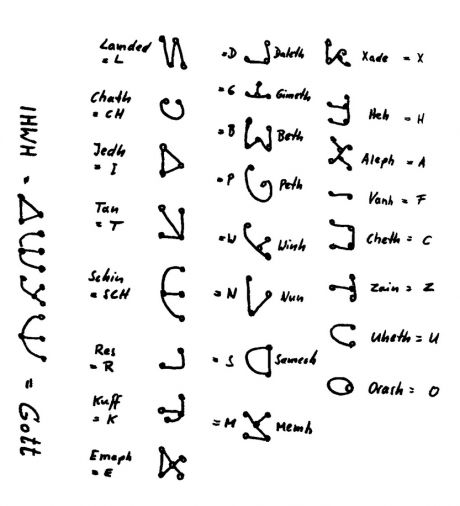 IHWH = = Gott
Lamded
= L
Chath
= CH
Jedh
= I
Tan
= T
Schin
= SCH
Res
= R
Kuff
= K
Emeph
= E
=D Daleth
=G Gimeth
=B Beth
=P Peth
=W Winh
=N Nun
=S Samesh
=M Memh
Xade = X
Heh = H
Aleph = A
Vanh = F
Cheth = C
Zain = Z
Uheth = U
Orash = O